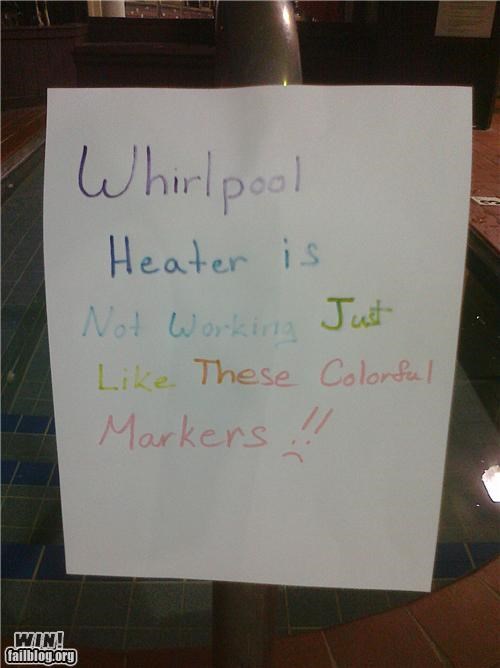 Whirlpool
Heater is
Not Working Just
Like These Colorful
Markers !!
WIN!
failblog.org